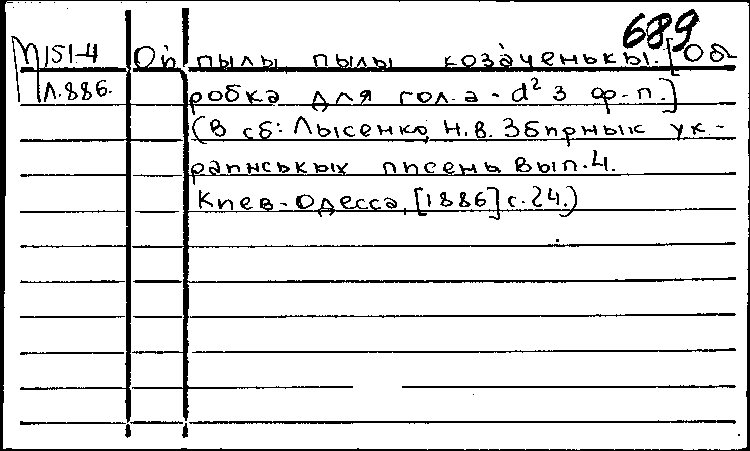 689
М151-4 Ой пылы пылы козаченькы. [Об-
Л.886. робка для гол. a - d² з ф-п.]
(В сб: Лысенко, Н.В. Збирныкъ ук-
раинськых писень Вып. 4.
Киев-Одесса, [1886] с. 24.)